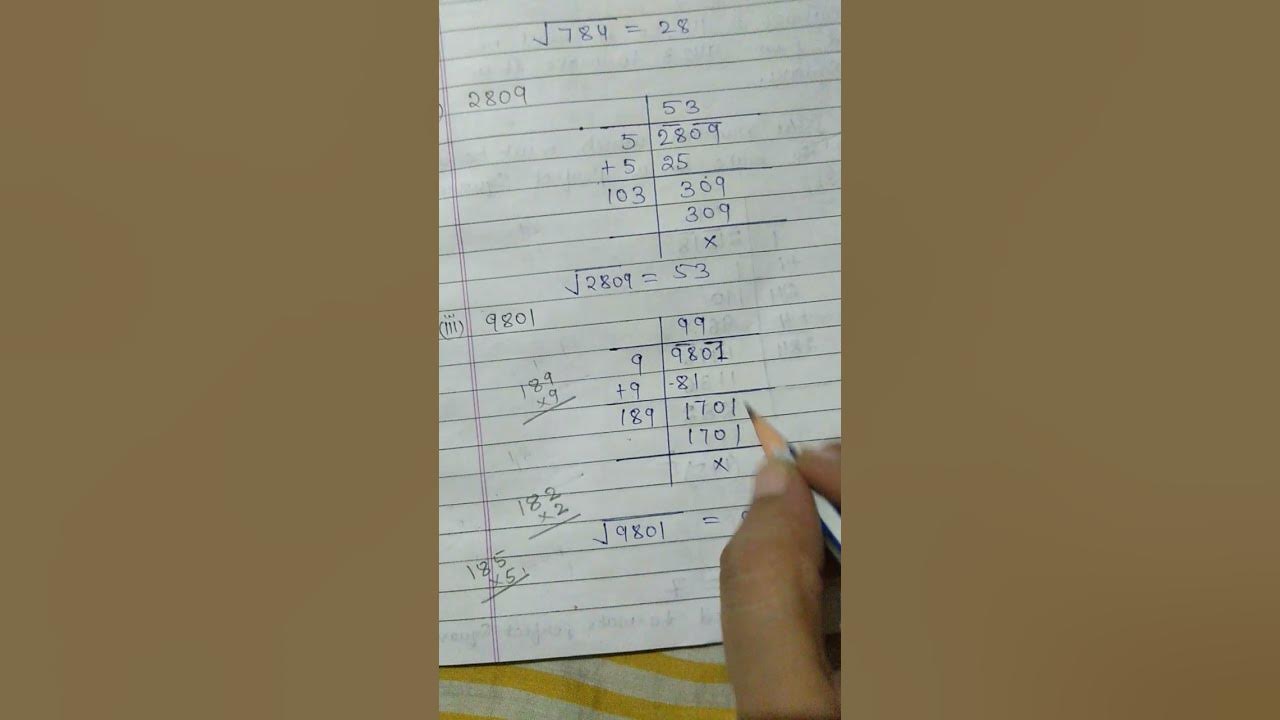 √784 = 28
) 2809
53
5 2809
+5 25
103 309
309
×
√2809 = 53
(iii) 9801
99
9 9801
+9 -81
189 1701
1701
×
189
×9
182
×2
√9801 =
185
×5